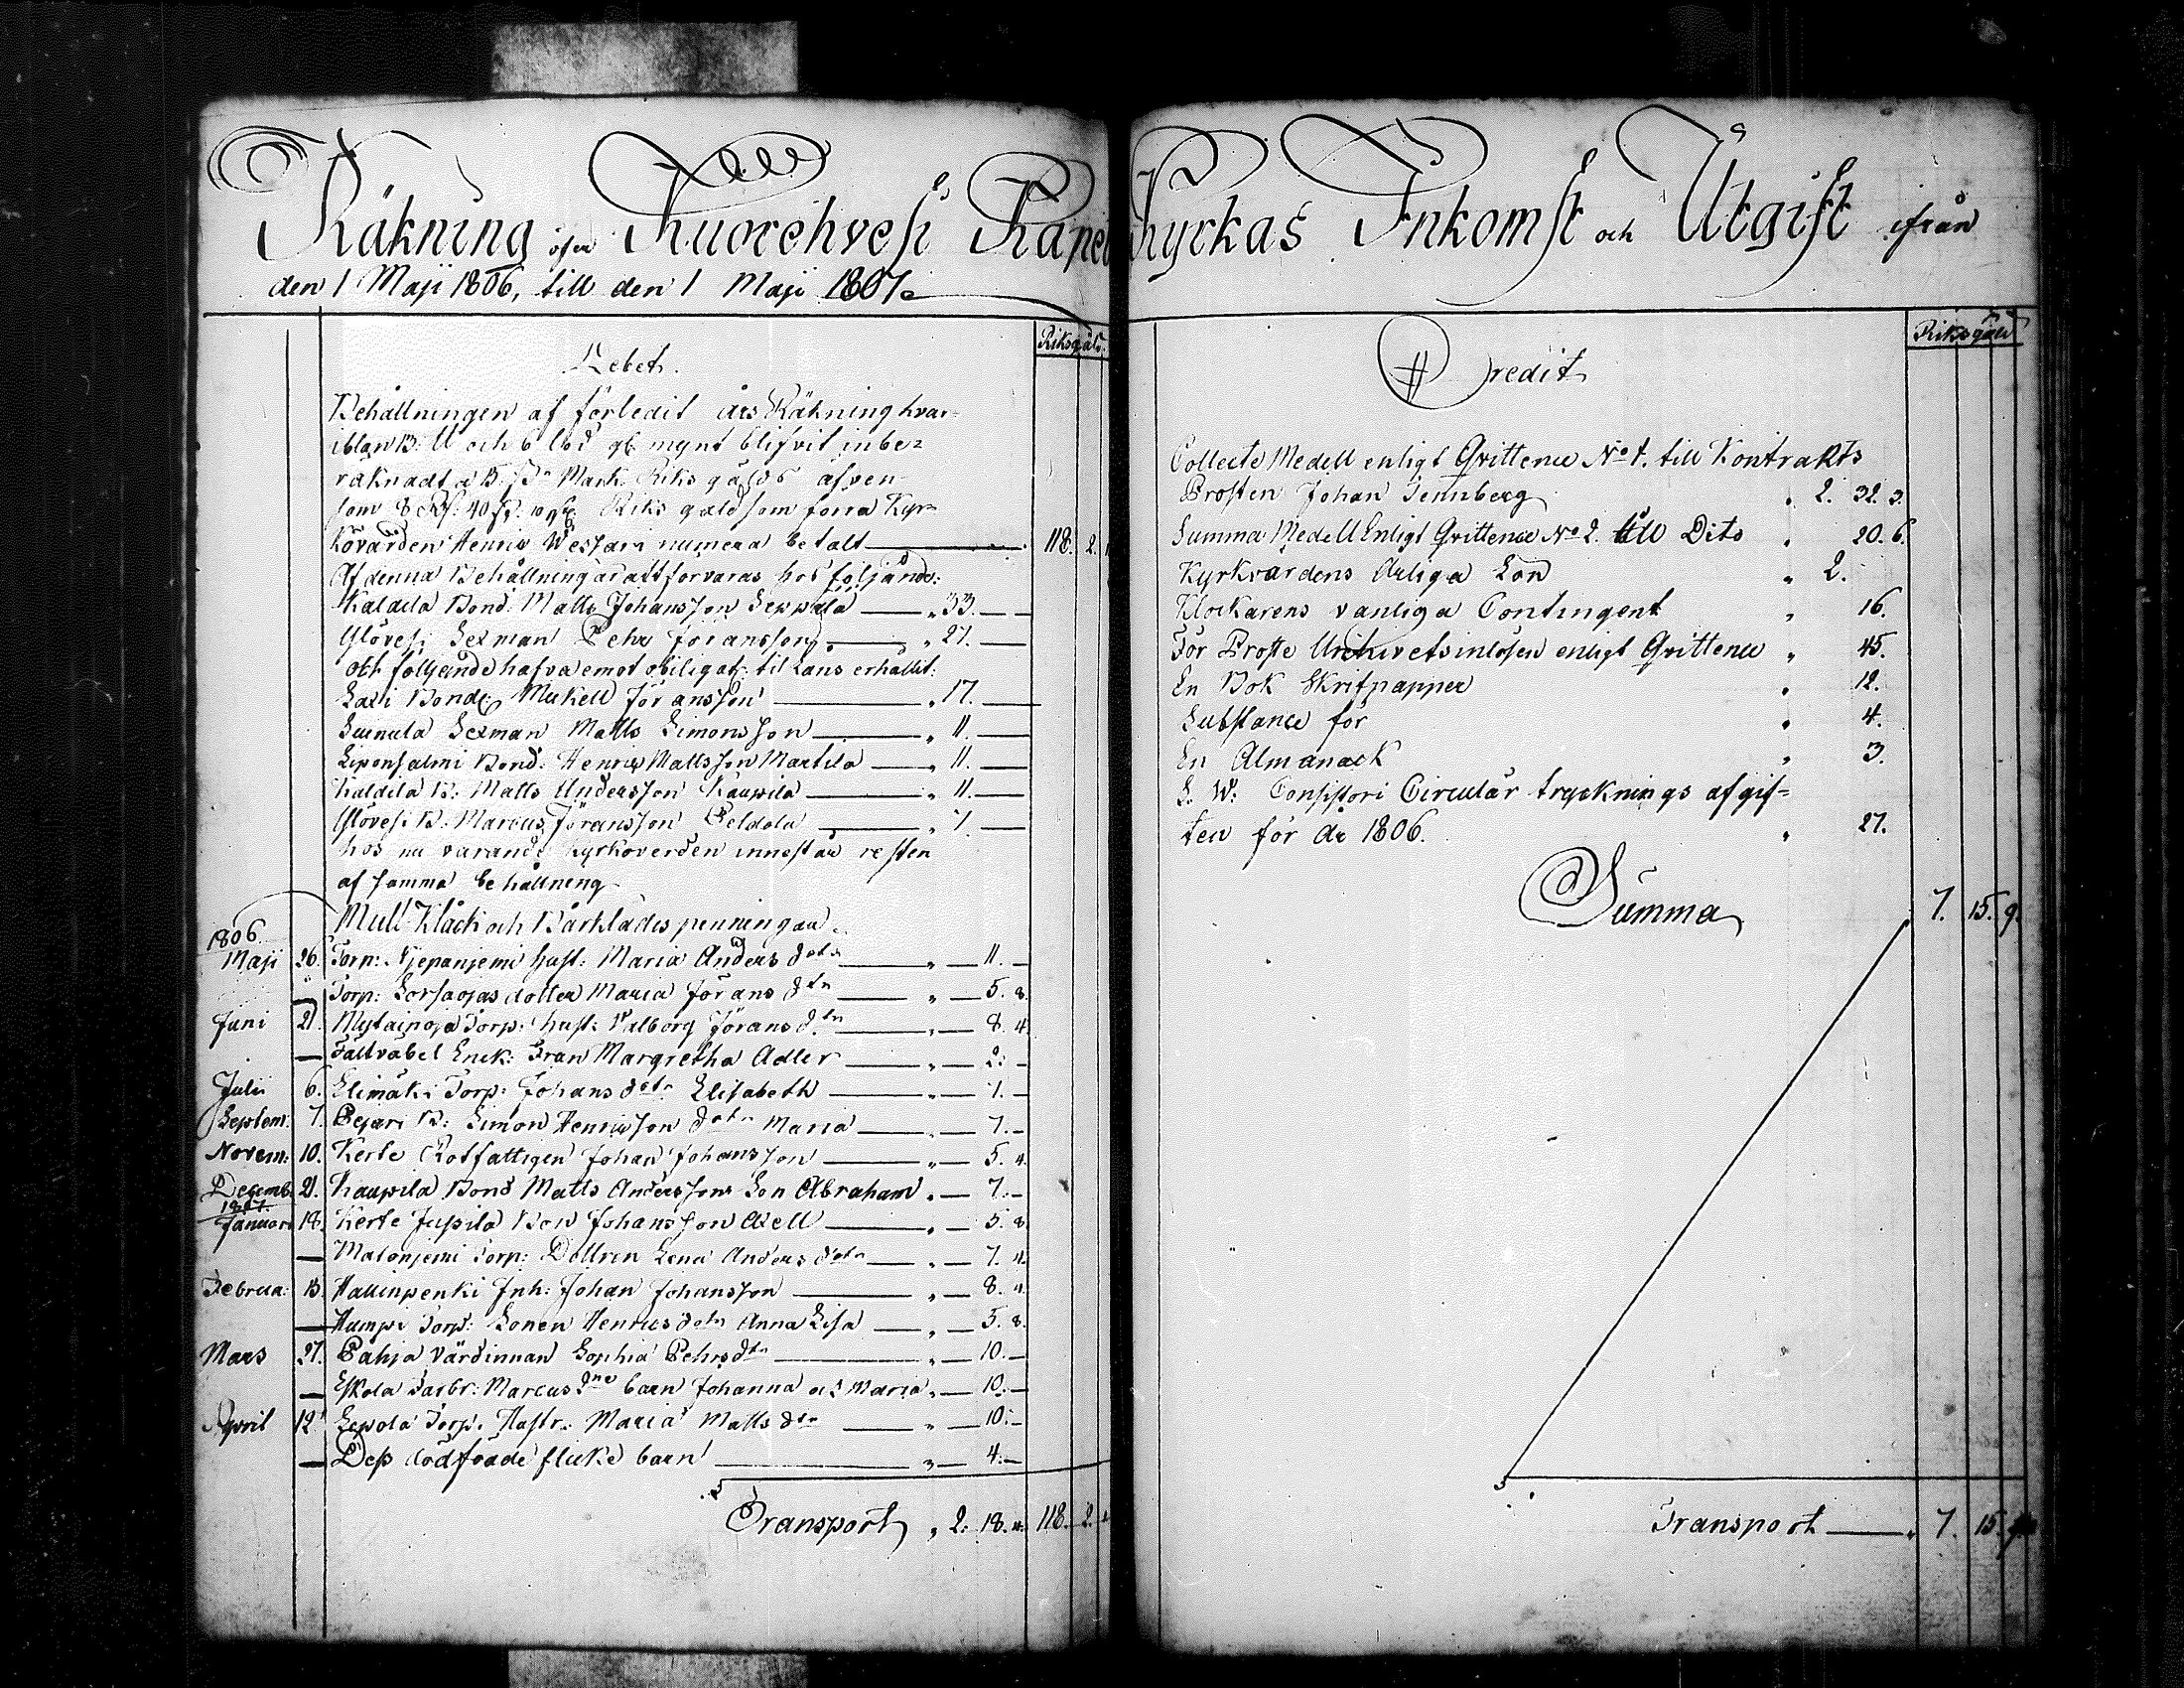 Räkning öfver Kuorehvesi Kapell Kyrkas Inkomst och Utgift ifrån
den 1 Maji 1806, till den 1 Maji 1807.
Riksgäld.
Debet.
Behållningen af förledit års Räkning hvar-
ibland B:
och 6 mynt blifvit inbe-
räknadt a B: Mark Riksgälds äfven
som 8 Rd: 40 s: 10 Riks gäld som förra Kyr-
kovärden Henric Wessari numera betalt 118. 2.
Af denna Behållning är att förvaras hos följande:
Kaldila Bond: Matts Johansson Seppälä " 33.
Ylövesi Sexman Pehr Jöransson " 27.
och följande hafva emot obligat: til Låns erhållit:
Lari Bond: Mickell Jöransson " 17.
Suinula Sexman Matts Simonsson " 11.
Liponsalmi Bond: Henric Mattsson Martila " 11.
Kaldila B: Matts Andersson Kaupila " 11.
Ylövesi B: Marcus Jöransson Peldola " 7.
hos nu varande Kyrkoverden innestår resten
af samma behållning
Mull Kläck och Bårklädes penningar
1806.
Maji 26. Torp: Njepanjemi hust: Maria Anders dotr " 11.
" Torp: Corsaojas dotter Maria Jörans dtr " 5. 8.
Juni 21. Mylainoja Torp: hust: Valborg Jörans dtr " 8. 4.
Fältväbel Enck: Fran Margretha Adler " 2:
Julii 6. Elimäki Torp: Johans dotr Elisabeth " 7.
Septem: 7. Pejari B: Simon Henricsson dotr Maria " 7.
Novem: 10. Kerte Rotfattigen Johan Johansson " 5. 4.
Decemb. 21. Kaupila Bond Matts Anderssons Son Abraham " 7.
1807.
Januari 18. Kerte Jussila Bon Johansson Axell " 5. 8.
Matonjemi Torp: Dottren Lena Anders dotr " 7. 4.
Februa: 13. Hallinpenki Inh: Johan Johansson " 8. 4.
Humpi Torp: Sonen Henrics dotr Anna Lisa " 5. 8.
Mars 27. Pahja värdinnan Sophia Pehrs dtr " 10.
Eskola Farbr: Marcus dne barn Johanna och Maria " 10.
April 12 Lepola Torp: Hustr: Maria Matts dtr " 10.
Dess dödfödde flicke barn " 4.
Transport " 2. 18. 4. 118. 2.
Riksgäld
Credit
Collecte Medell enligt Qvittence No 1. till Kontrakts
Prosten Johan Tennberg " 2. 32. 3.
Summa Medell Enligt Qvittence No 2. till Dito " 20. 6.
Kyrkvärdens Årliga Lön " 2.
Klockarens vanliga Contingent " 16.
För Proste Urchivets inlösen enligt Qvittence " 45.
En Bok Skrifpapper " 12.
Substance för " 4.
En Almanack " 3.
S: W: Consistori Circulär trycknings afgif-
ten för År 1806. " 27.
Summa 7. 15. 9.
Transport " 7. 15. 9.